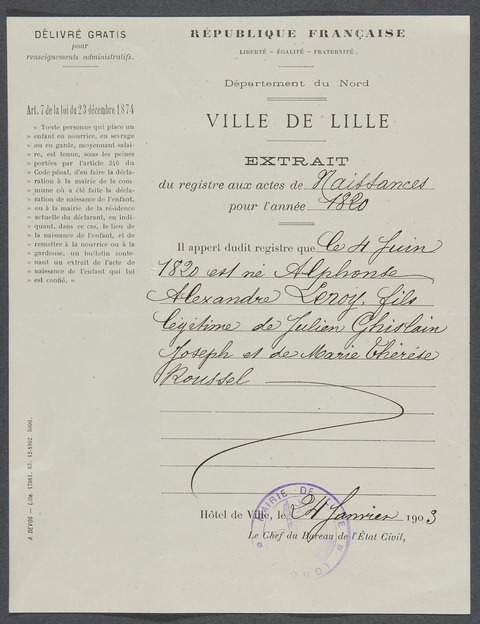 DÉLIVRÉ GRATIS
pour
renseignements administratifs.
Art. 7 de la loi du 23 décembre 1874
« Toute personne qui place un
» enfant en nourrice, en sevrage
» ou en garde, moyennant salai-
» re, est tenue, sous les peines
» portées par l'article 346 du
» Code pénal, d'en faire la décla-
» ration à la mairie de la com-
» mune où a été faite la décla-
» ration de naissance de l'enfant,
» ou à la mairie de la résidence
» actuelle du déclarant, en indi-
» quant, dans ce cas, le lieu de
» la naissance de l'enfant, et de
» remettre à la nourrice ou à la
» gardeuse, un bulletin conte-
» nant un extrait de l'acte de
» naissance de l'enfant qui lui
» est confié. »
RÉPUBLIQUE FRANÇAISE
LIBERTÉ – ÉGALITÉ – FRATERNITÉ.
Département du Nord
VILLE DE LILLE
EXTRAIT
du registre aux actes de Naissances
pour l'année 1820
Il appert dudit registre que le 4 Juin
1820 est né Alphonse
Alexandre Leroy, fils
légitime de Julien Ghislain
Joseph et de Marie Thérèse
Roussel
Hôtel de Ville, le 24 Janvier 1903
Le Chef du Bureau de l'État Civil,
MAIRIE DE LILLE